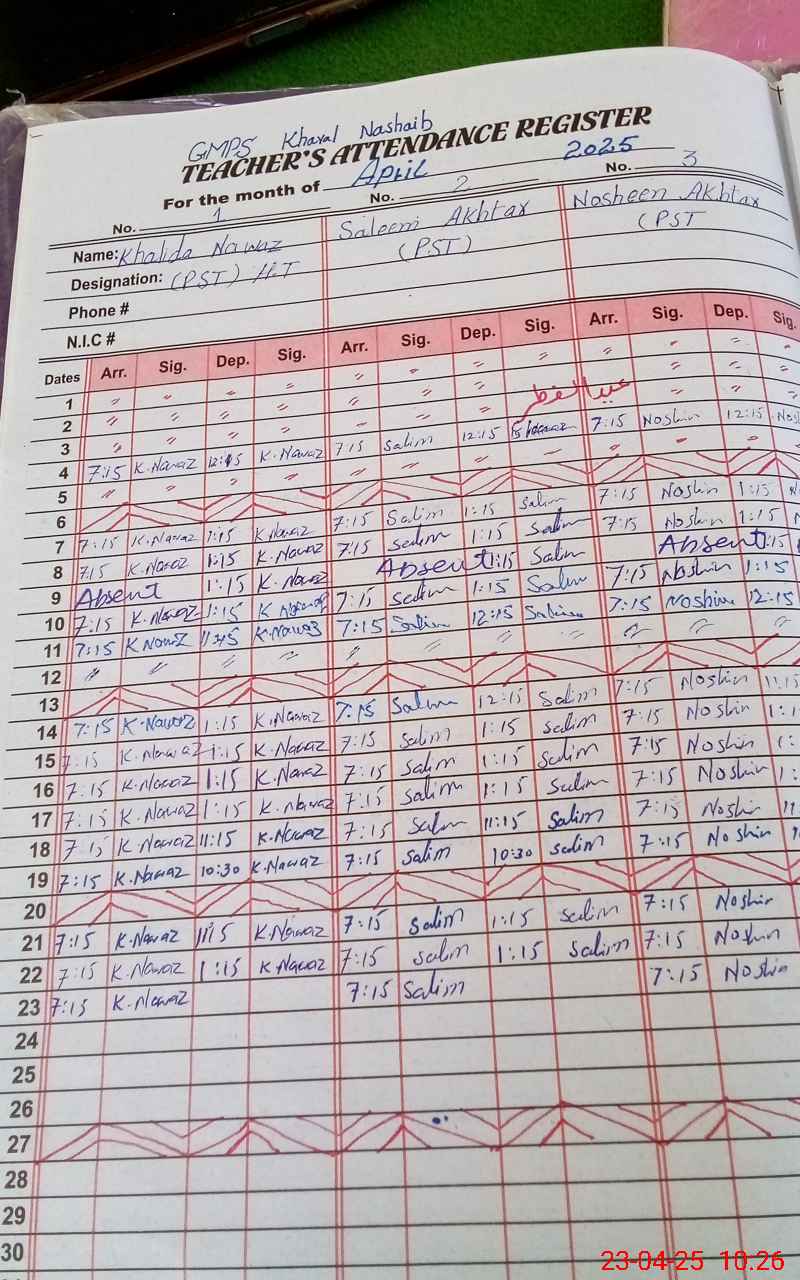 GMPS Kharal Nashaib
TEACHER'S ATTENDANCE REGISTER
For the month of April 2025
No. 1 No. 2 No. 3
Name: Khalida Nawaz Saleem Akhtar Nosheen Akhtar
Designation: (PST) H.T (PST) (PST
Phone #
N.I.C #
Dates Arr. Sig. Dep. Sig. Arr. Sig. Dep. Sig. Arr. Sig. Dep. Sig.
1 〃 〃 〃 〃 〃 〃 〃 〃 〃 〃 〃
2 〃 〃 〃 〃 〃 〃 〃 عيد الفطر 〃 〃 〃
3 〃 〃 〃 〃 〃 〃 〃 〃 〃 〃
4 7:15 K.Nawaz 12:15 K.Nawaz 7:15 Salim 12:15 7:15 Noshin 12:15 Nos
5 〃 〃 〃 〃 〃 〃 〃 〃 〃 〃 〃
6
7 7:15 K.Nawaz 1:15 K.Nawaz 7:15 Salim 1:15 Salim 7:15 Noshin 1:15 N
8 7:15 K.Nawaz 1:15 K.Nawaz 7:15 Salim 1:15 Salim 7:15 Noshin 1:15
9 Absent 1:15 K.Nawaz Absent 1:15 Salim Absent 1:15
10 7:15 K.Nawaz 1:15 K.Nawaz 7:15 Salim 1:15 Salim 7:15 Noshin 1:15
11 7:15 K.Nawaz K.Nawaz 7:15 Salim 12:15 Salim 7:15 Noshin 12:15
12 〃 〃 〃 〃 〃 〃 〃 〃 〃 〃
13
14 7:15 K.Nawaz 1:15 K.Nawaz 7:15 Salim 12:15 Salim 7:15 Noshin 11:15
15 7:15 K.Nawaz 1:15 K.Nawaz 7:15 Salim 1:15 Salim 7:15 Noshin 1:1
16 7:15 K.Nawaz 1:15 K.Nawaz 7:15 Salim 1:15 Salim 7:15 Noshin 1:
17 7:15 K.Nawaz 1:15 K.Nawaz 7:15 Salim 1:15 Salim 7:15 Noshin 1:
18 7:15 K.Nawaz 11:15 K.Nawaz 7:15 Salim 11:15 Salim 7:15 Noshin 11
19 7:15 K.Nawaz 10:30 K.Nawaz 7:15 Salim 10:30 Salim 7:15 Noshin
20
21 7:15 K.Nawaz 1:15 K.Nawaz 7:15 Salim 1:15 Salim 7:15 Noshin
22 7:15 K.Nawaz 1:15 K.Nawaz 7:15 Salim 1:15 Salim 7:15 Noshin
23 7:15 K.Nawaz 7:15 Salim 7:15 Noshin
24
25
26
27
28
29
30
23-04-25 10.26